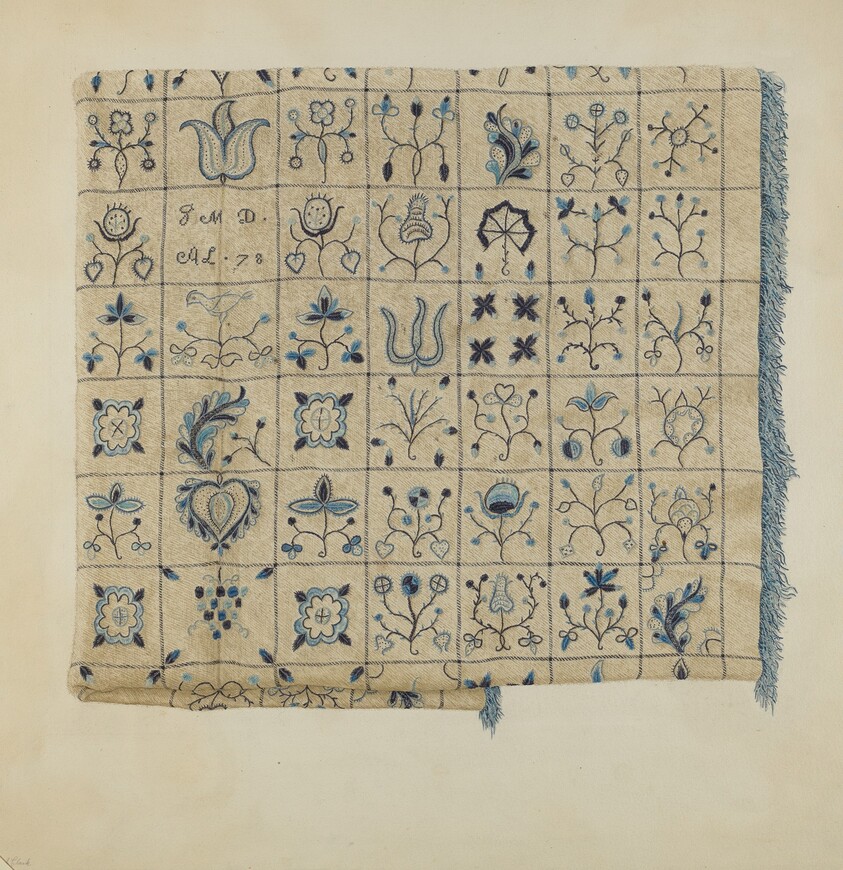 J M D.
AL. 78